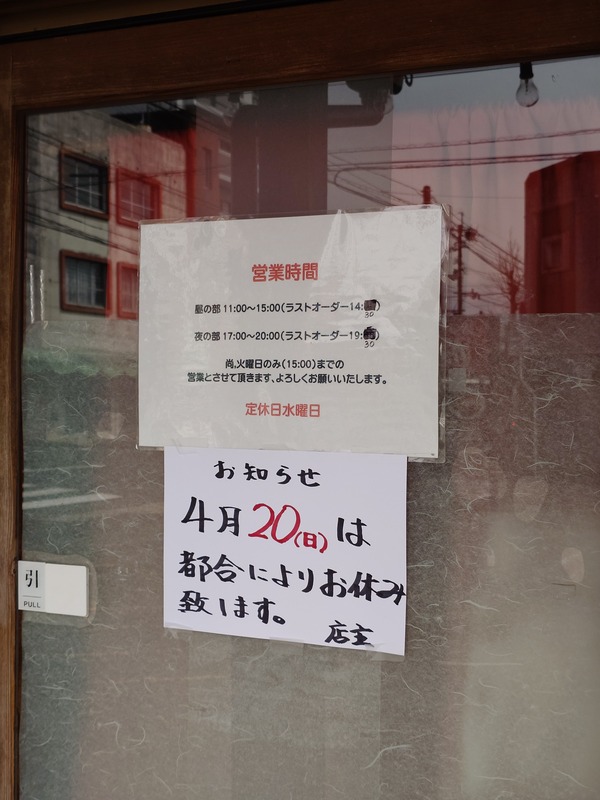 営業時間
昼の部 11:00〜15:00(ラストオーダー14: )
30
夜の部 17:00〜20:00(ラストオーダー19: )
30
尚、火曜日のみ(15:00)までの
営業とさせて頂きます、よろしくお願いいたします。
定休日水曜日
お知らせ
4月20(日)は
都合によりお休み
致します。
店主
引
PULL